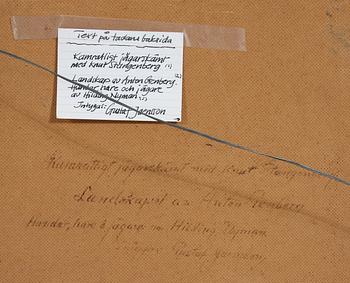 Text på tadans baksida
Kamratligt jägarskämt
med Knut Stångenberg (1)
Landskap av Anton Genberg. (2)
Hundar, hare och jägare
av Hilding Nyman. (3)
Intygar: Gustaf Jaensson
Kamratligt jägarskämt med Knut Stangenberg
Landskapet av Anton Genberg
Hundar, hare & jägare av Hilding Nyman
Gustaf Jaensson